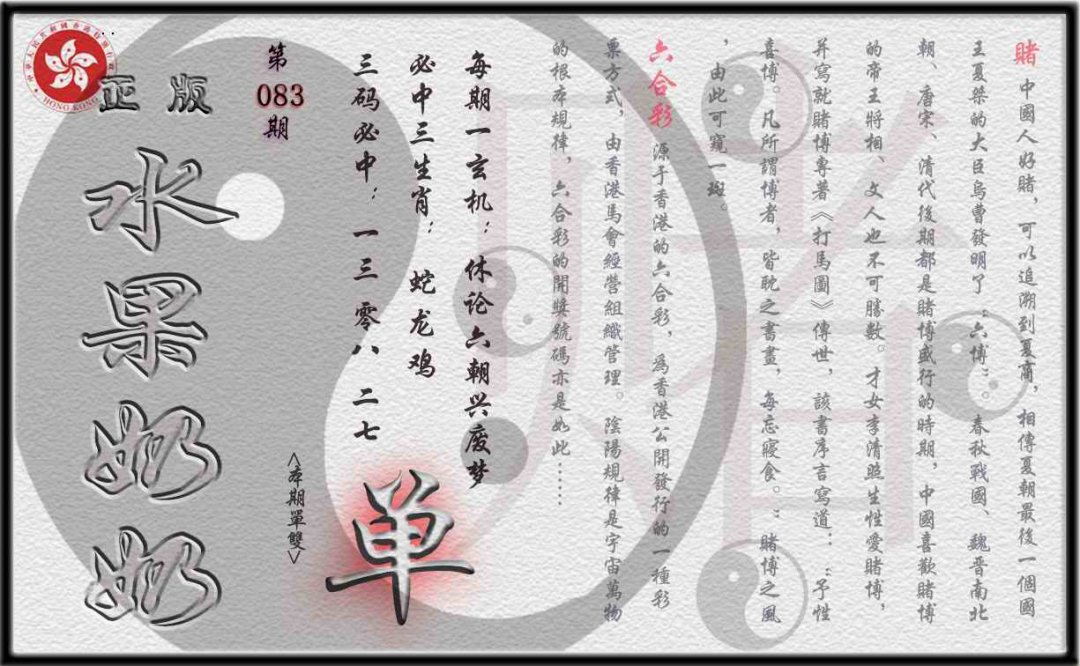 賭 中國人好賭，可以追溯到夏商，相傳夏朝最後一個國
王夏桀的大臣烏曹發明了“六博”。春秋戰國、魏晋南北
朝、唐宋、清代後期都是賭博盛行的時期，中國喜歡賭博
的帝王將相、文人也不可勝數。才女李清照生性愛賭博，
并寫就賭博專著《打馬圖》傳世，該書序言寫道：“予性
喜博。凡所謂博者，皆耽之書晝，每忘寢食。”賭博之風
，由此可窺一斑。
六合彩 源于香港的六合彩，爲香港公開發行的一種彩
票方式，由香港馬會經營組織管理。陰陽規律是宇宙萬物
的根本規律，六合彩的開獎號碼亦是如此……
每期一玄机：休论六朝兴废梦
必中三生肖：蛇龙鸡
三码必中：一三 零八 二七
单
<本期單雙>
第083期
正版
水果奶奶
HONG KONG